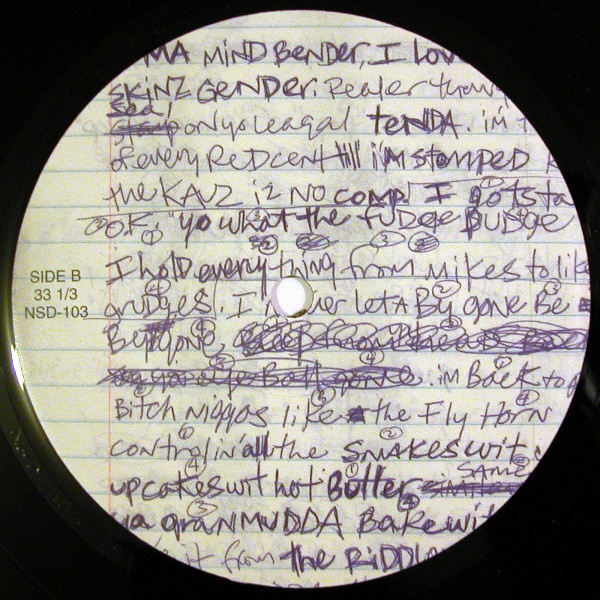 MA MIND BENDER, I LOV
SKINZ GENDER. Realer than
Seal
on yo leagal TENDA. i'm
of every RED cent till i'm stomped
the KAUZ iz NO comp! I gots ta
OK. "yo what the FUDGE BUDGE
I hold everything from Mikes to
grudges. I never let A By gone Be
By gone,
.im Back to
Bitch niggas like the Fly HORN
controlin' all the SNAKES wit
upcakes wit hot Butter SAME
ya granMUDDA Bake wit
it from the RIDDL
SIDE B
33 1/3
NSD-103